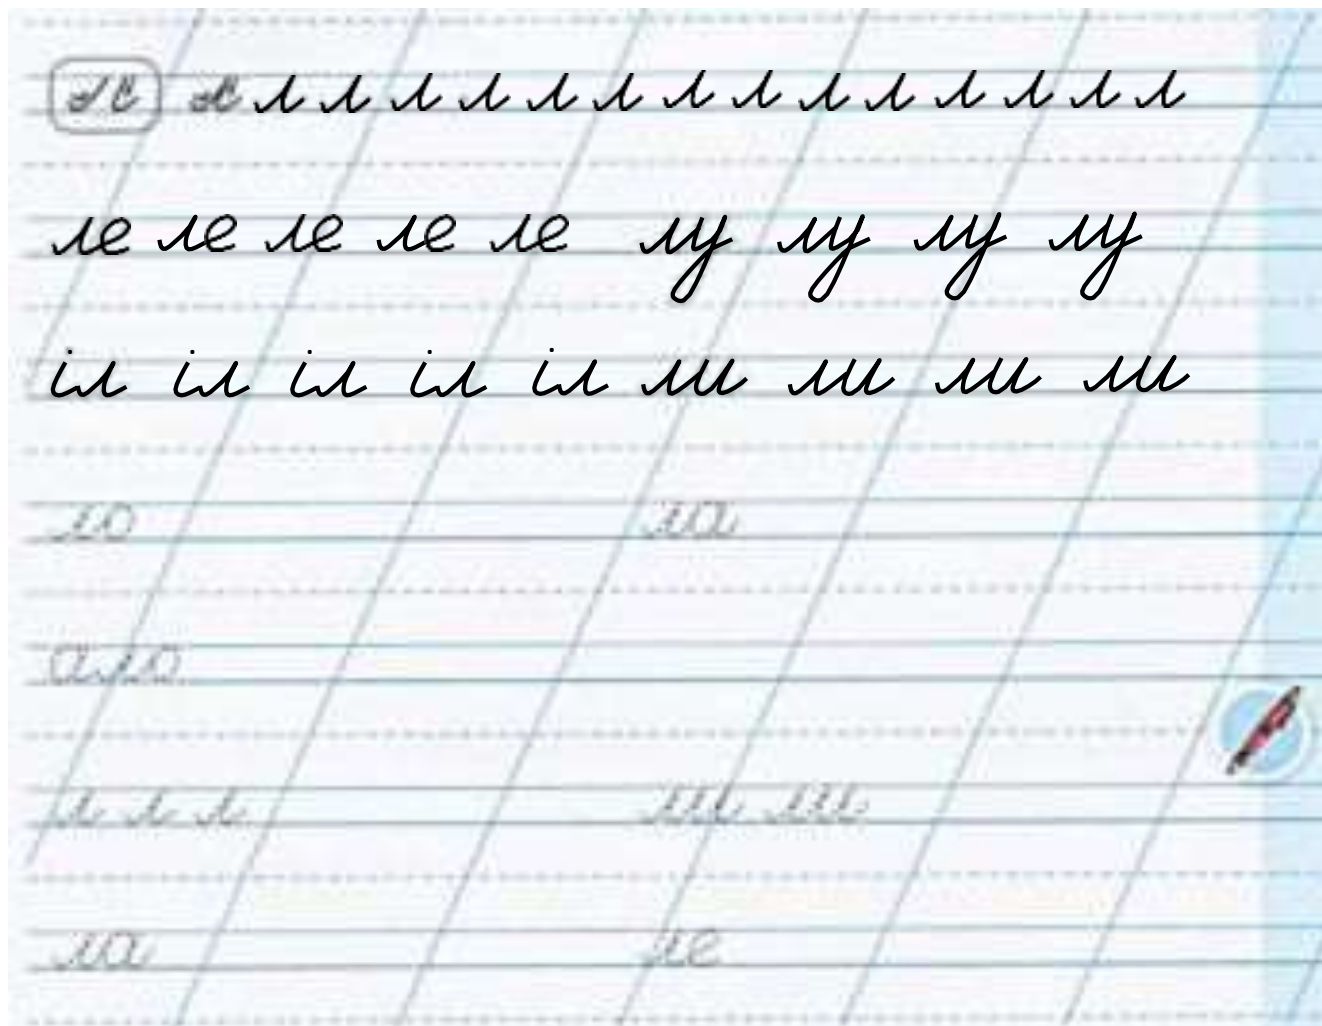 л л л л л л л л л л л л л л
ле ле ле ле ле лу лу лу лу
іл іл іл іл іл ли ли ли ли
ло ла
ало
л л л ли ли
ла ле